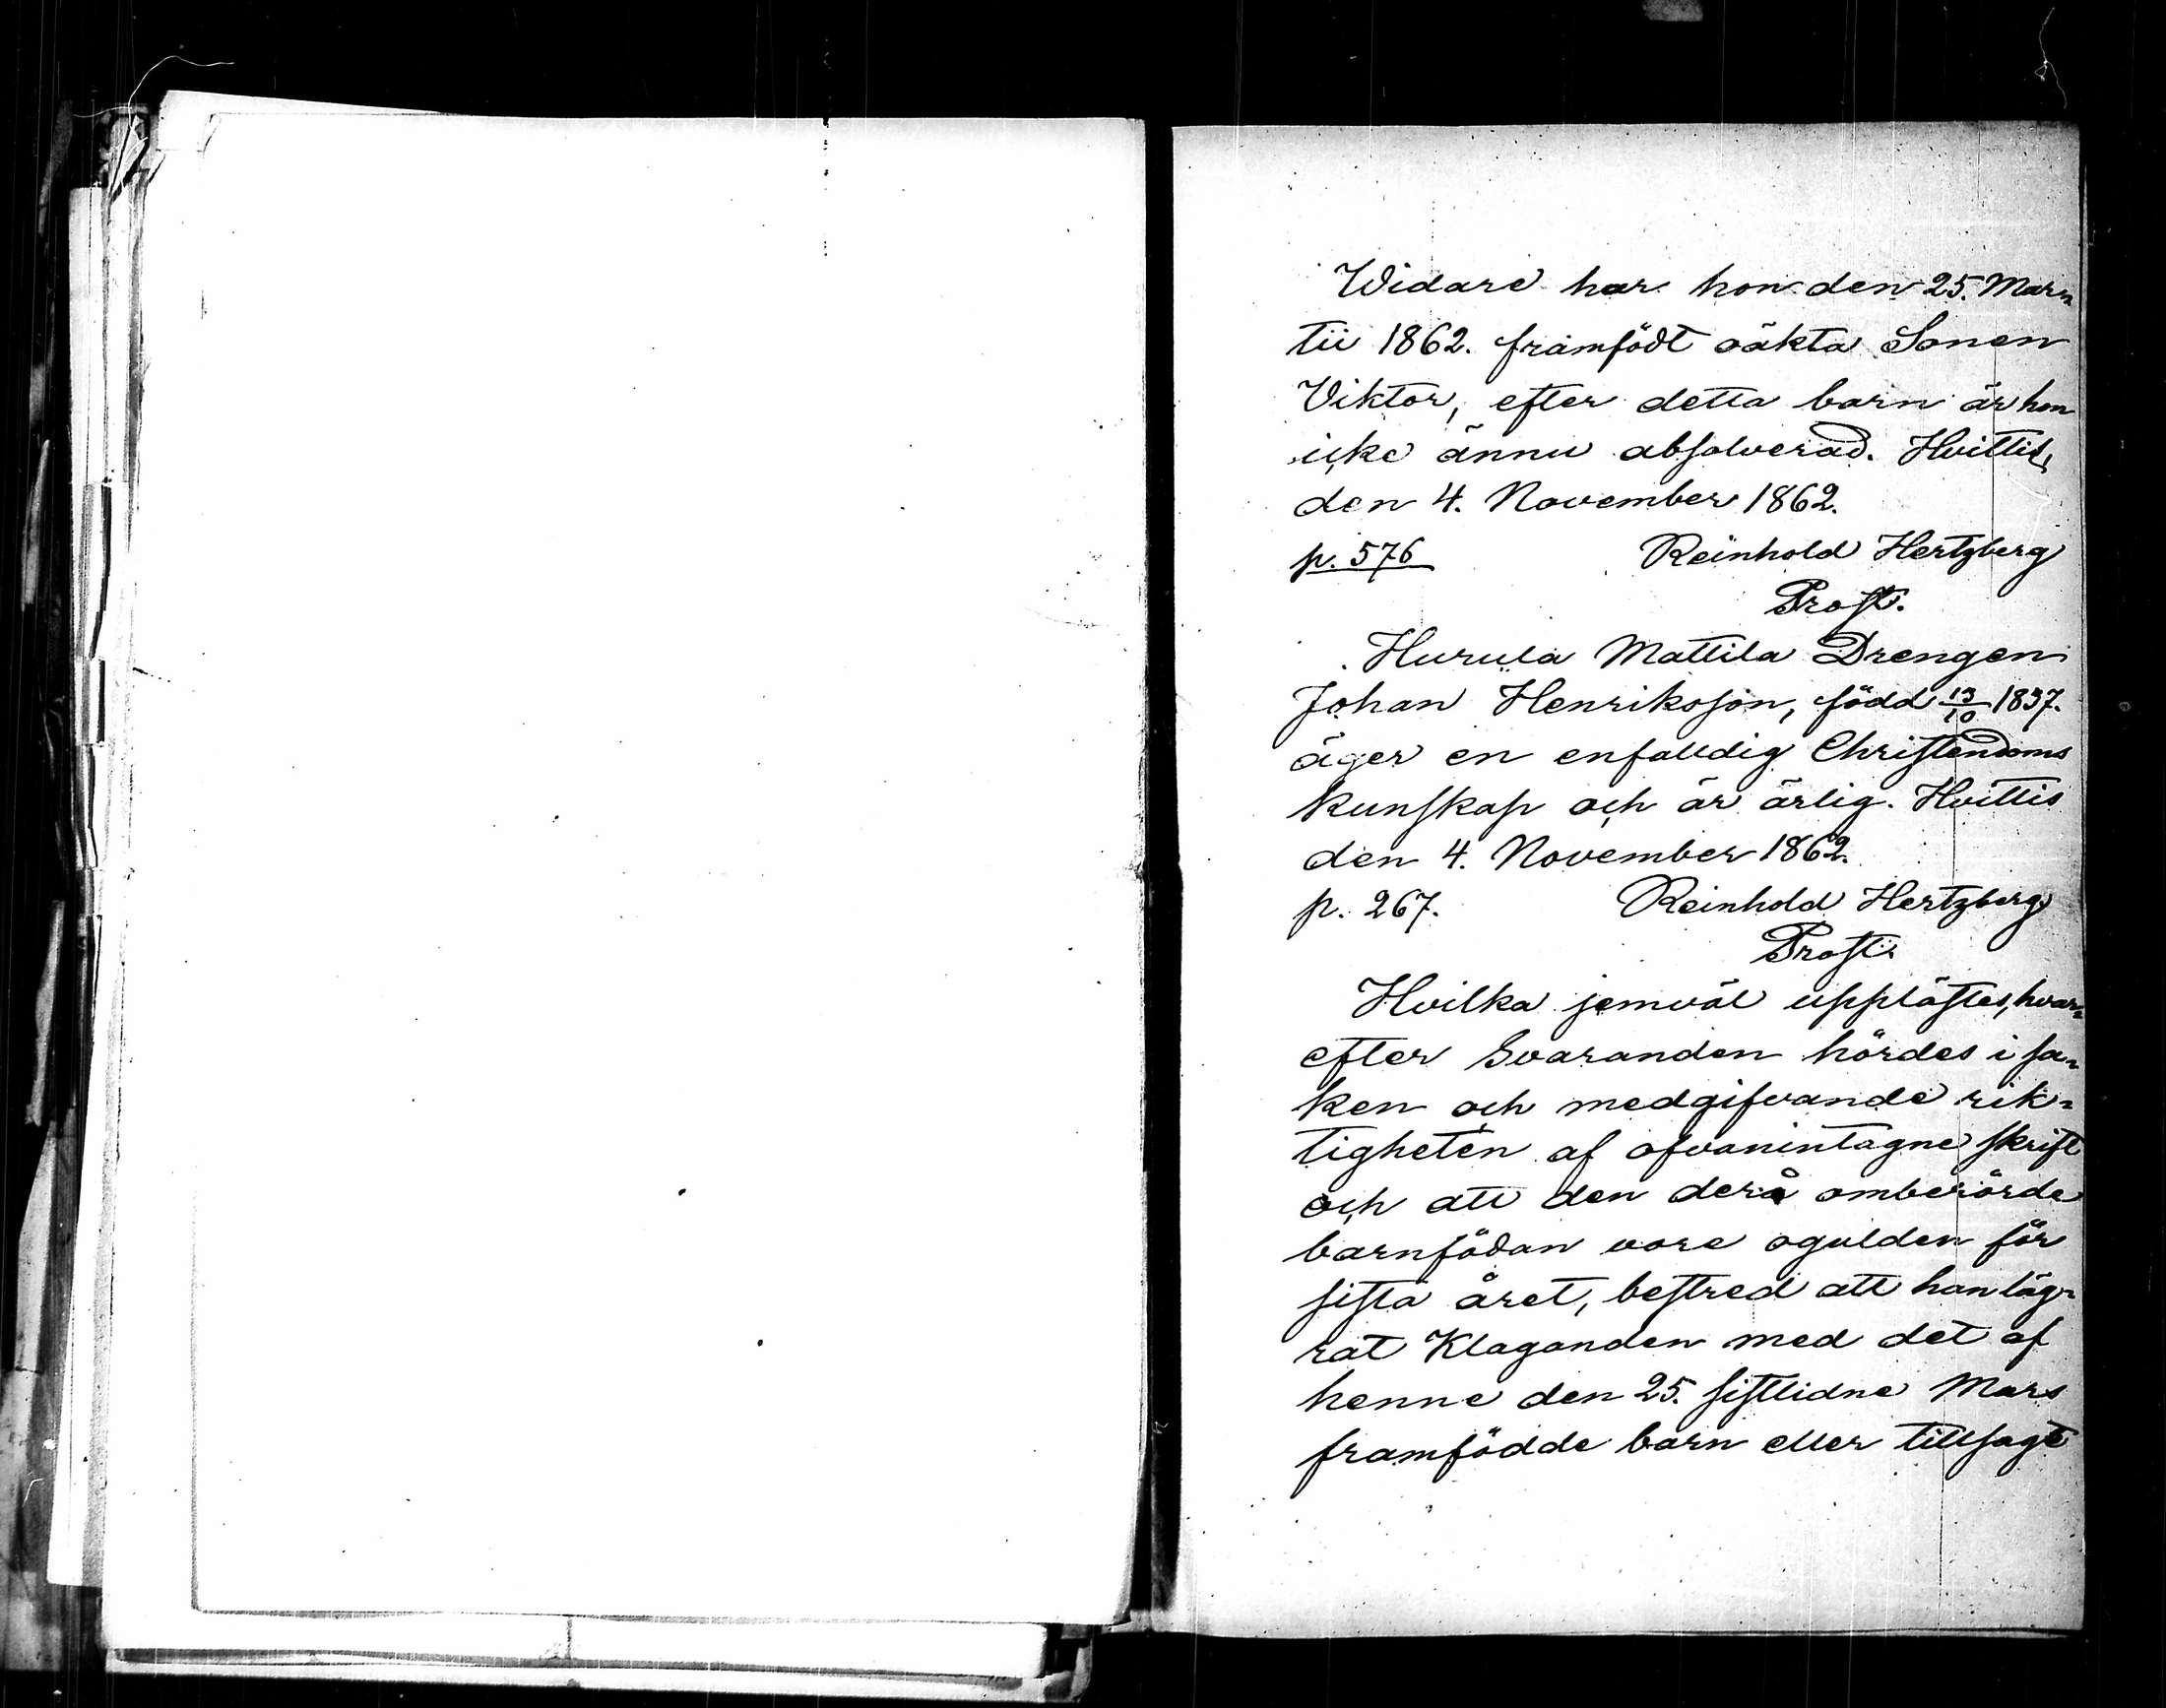 Widare har hon den 25. Mar-
tii 1862. framfödt oäkta Sonen
Viktor, efter detta barn är hon
icke ännu absolverad. Hvittis,
den 4. November 1862.
p. 576 Reinhold Hertzberg
Prost.
Hurula Mattila Drengen
Johan Henriksson, född 13/10 1837.
äger en enfalldig Christendoms
kunskap och är ärlig. Hvittis
den 4. November 1862.
p. 267. Reinhold Hertzberg
Prost.
Hvilka jemväl upplästes, hvar-
efter Svaranden hördes i sa-
ken och medgifvande rik-
tigheten af ofvanintagne skrift
och att den derå omberörde
barnfödan vore ogulden för
sista året, bestred att han läg-
rat Klaganden med det af
henne den 25. sistlidne Mars
framfödde barn eller tillsagt